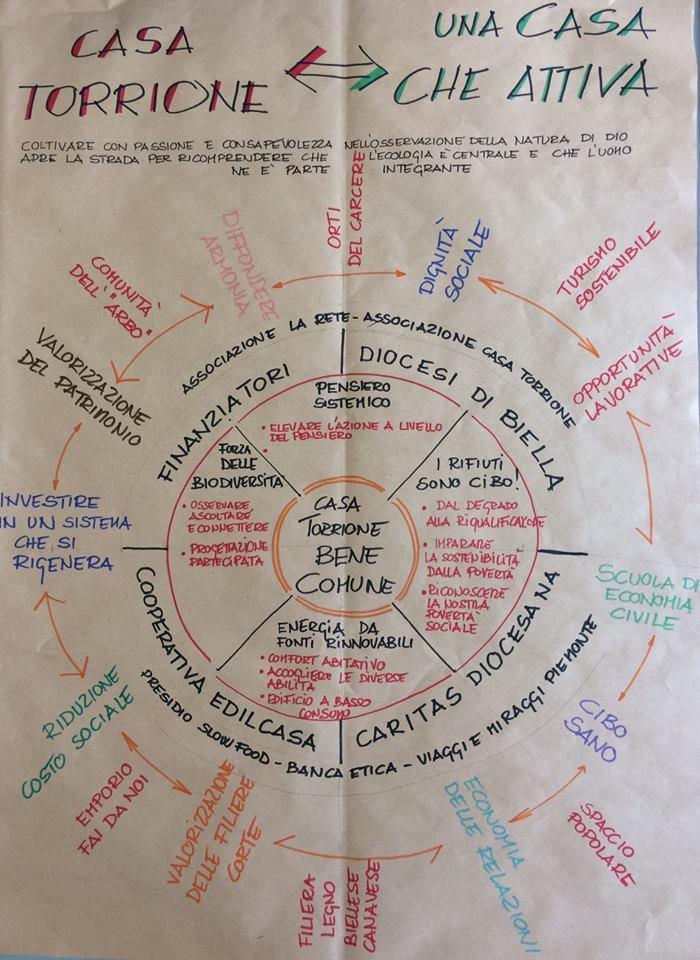 CASA
TORRIONE
UNA CASA
CHE ATTIVA
COLTIVARE CON PASSIONE E CONSAPEVOLEZZA NELL'OSSERVAZIONE DELLA NATURA DI DIO
APRE LA STRADA PER RICOMPRENDERE CHE L'ECOLOGIA È CENTRALE E CHE L'UOMO
NE È PARTE INTEGRANTE
ORTI
DEL CARCERE
DIFFONDERE
ARMONIA
DIGNITÀ
SOCIALE
TURISMO
SOSTENIBILE
OPPORTUNITÀ
LAVORATIVE
SCUOLA DI
ECONOMIA
CIVILE
CIBO
SANO
SPACCIO
POPOLARE
ECONOMIA
DELLE RELAZIONI
FILIERA
LEGNO
BIELLESE
CANAVESE
VALORIZZAZIONE
DELLE FILIERE
CORTE
EMPORIO
FAI DA NOI
RIDUZIONE
COSTO SOCIALE
INVESTIRE
IN UN SISTEMA
CHE SI
RIGENERA
VALORIZZAZIONE
DEL PATRIMONIO
COMUNITÀ
DELL'"ARBO"
ASSOCIAZIONE LA RETE - ASSOCIAZIONE CASA TORRIONE
FINANZIATORI
DIOCESI DI BIELLA
CARITAS DIOCESANA
COOPERATIVA EDILCASA
PRESIDIO SLOWFOOD - BANCA ETICA - VIAGGI E MIRAGGI PIEMONTE
PENSIERO
SISTEMICO
• ELEVARE L'AZIONE A LIVELLO
DEL PENSIERO
•
I RIFIUTI
SONO CIBO!
• DAL DEGRADO
ALLA RIQUALIFICAL'OFE
• IMPARARE
LA SOSTENIBILITÀ
DALLA POVERTÀ
• RICONOSCERE
LA NOSTRA
POVERTÀ
SOCIALE
ENERGIA DA
FONTI RINNOVABILI
• COMFORT ABITATIVO
• ACCOGLIERE LE DIVERSE
ABILITÀ
• EDIFICIO A BASSO
CONSUMO
FORZA
DELLE
BIODIVERSITÀ
• OSSERVARE
ASCOLTARE
E CONNETTERE
• PROGETTAZIONE
PARTECIPATA
CASA
TORRIONE
BENE
COMUNE